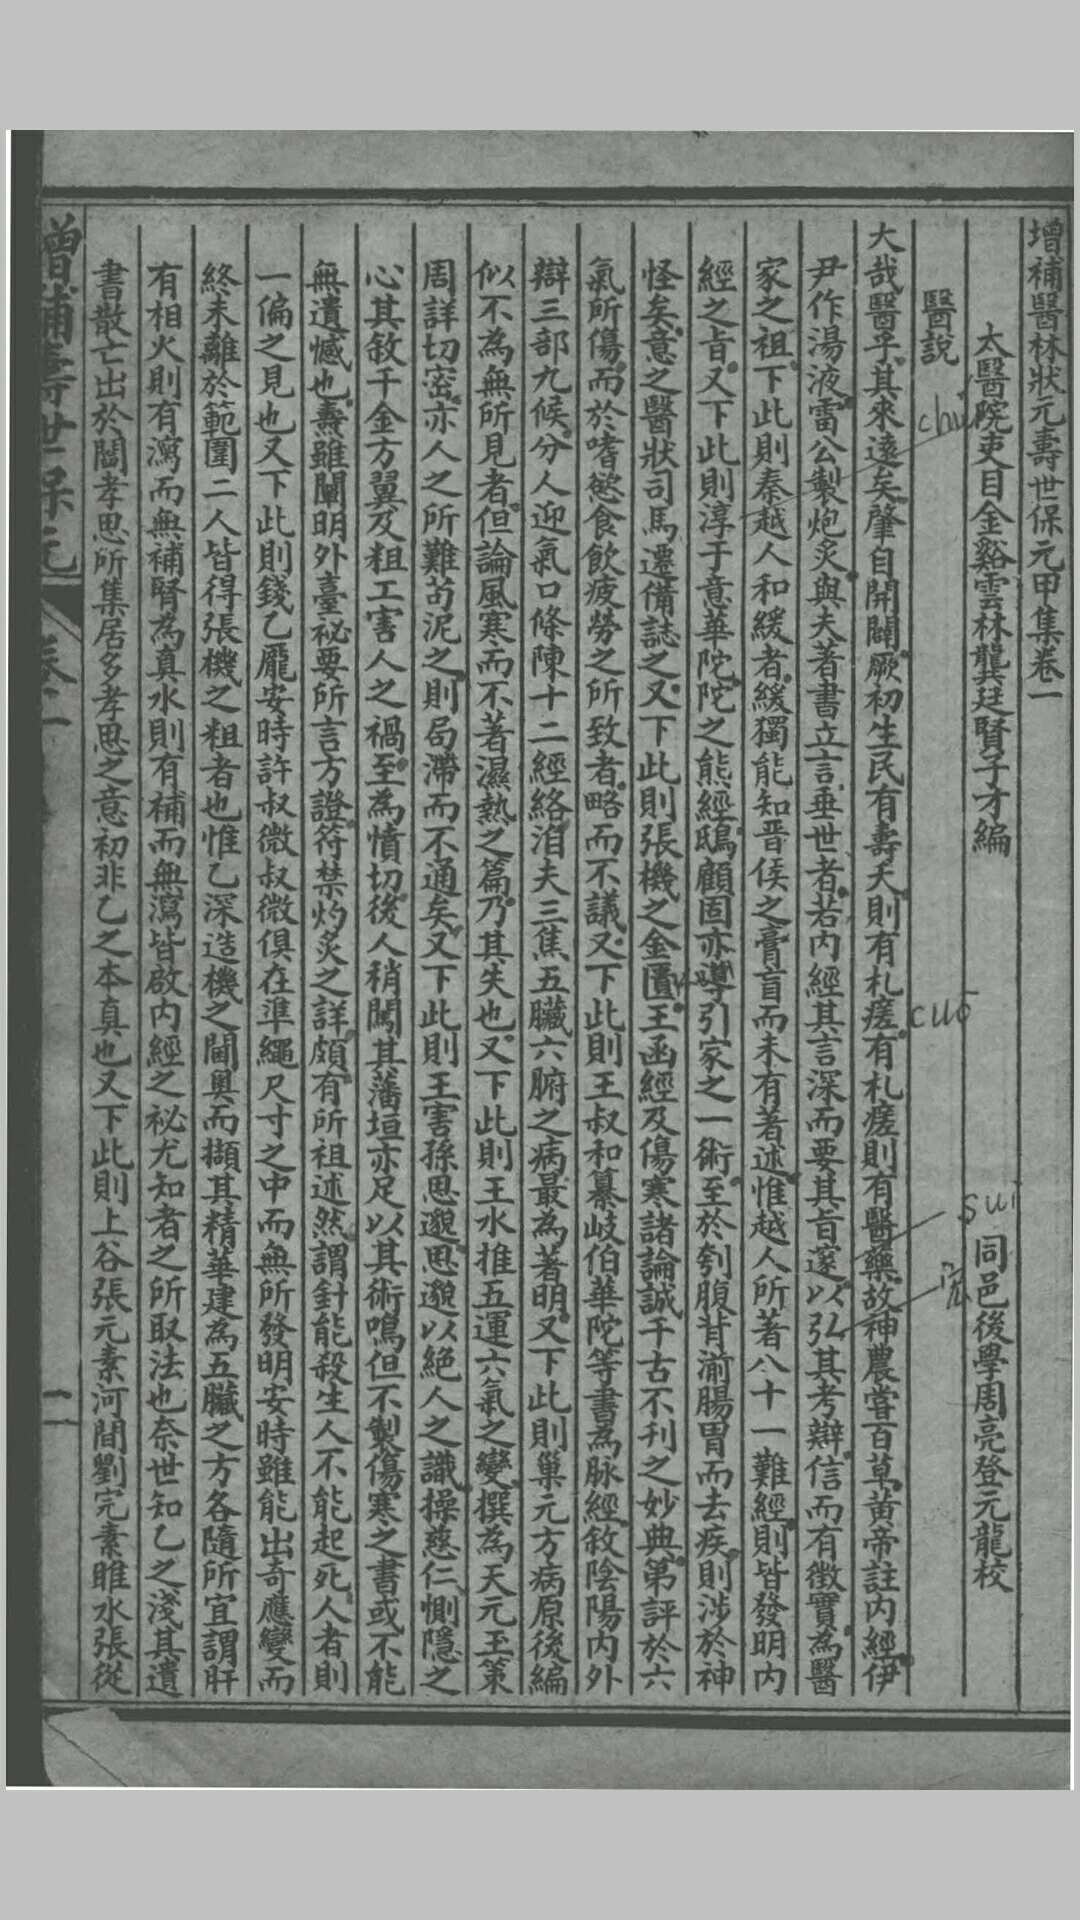 增補醫林狀元壽世保元甲集卷一
太醫院吏目金谿雲林龔廷賢子才編
同邑後學周亮登元龍校
醫說
大哉醫乎其來遠矣肇自開闢厥初生民有壽夭則有札瘥有札瘥則有醫藥故神農嘗百草黄帝註内經伊
尹作湯液雷公製炮炙與夫著書立言垂世者若内經其言深而要其旨邃以弘其考辯信而有徵實為醫
家之祖下此則秦越人和緩者緩獨能知晋侯之膏肓而未有著述惟越人所著八十一難經則皆發明内
經之旨又下此則淳于意華陀陀之熊經鴟顧固亦導引家之一術至於刳腹背湔腸胃而去疾則涉於神
怪矣意之醫狀司馬遷備誌之又下此則張機之金匱王函經及傷寒諸論誠千古不刊之妙典第評於六
氣所傷而於嗜慾食飲疲勞之所致者略而不議又下此則王叔和纂岐伯華陀等書為脉經敘陰陽内外
辯三部九候分人迎氣口條陳十二經絡洎夫三焦五臟六腑之病最為著明又下此則巢元方病原後編
似不為無所見者但論風寒而不著濕熱之篇乃其失也又下此則王水推五運六氣之變撰為天元玉策
周詳切密亦人之所難苟泥之則局滯而不通矣又下此則王害孫思邈思邈以絕人之識操慈仁惻隱之
心其敘千金方翼及粗工害人之禍至為憤切後人稍闖其藩垣亦足以其術鳴但不製傷寒之書或不能
無遺憾也燾雖闡明外臺祕要所言方證符禁灼炙之詳頗有所祖述然謂針能殺生人不能起死人者則
一偏之見也又下此則錢乙龎安時許叔微叔微俱在準繩尺寸之中而無所發明安時雖能出奇應變而
終未離於範圍二人皆得張機之粗者也惟乙深造機之閫奥而擷其精華建為五臟之方各隨所宜謂肝
有相火則有瀉而無補腎為真水則有補而無瀉皆啟内經之祕尤知者之所取法也奈世知乙之淺其遺
書散亡出於閻孝思所集居多孝思之意初非乙之本真也又下此則上谷張元素河間劉完素睢水張從
增補壽世保元
卷一
一
chú
cuō
suì